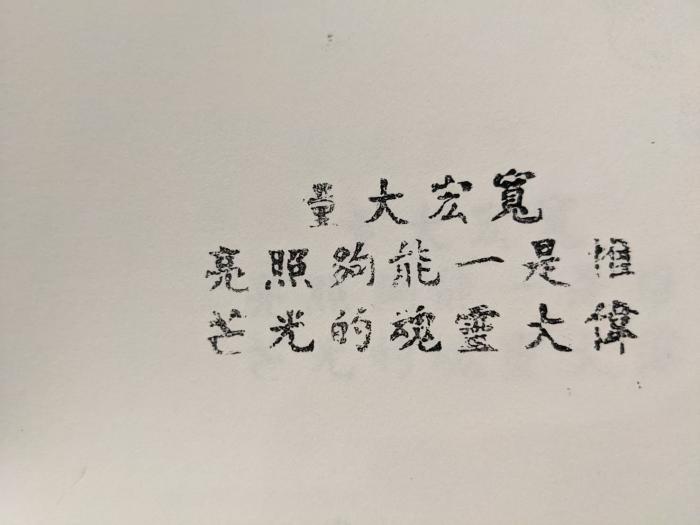 寬宏大量
惟是一能夠照亮
偉大靈魂的光芒